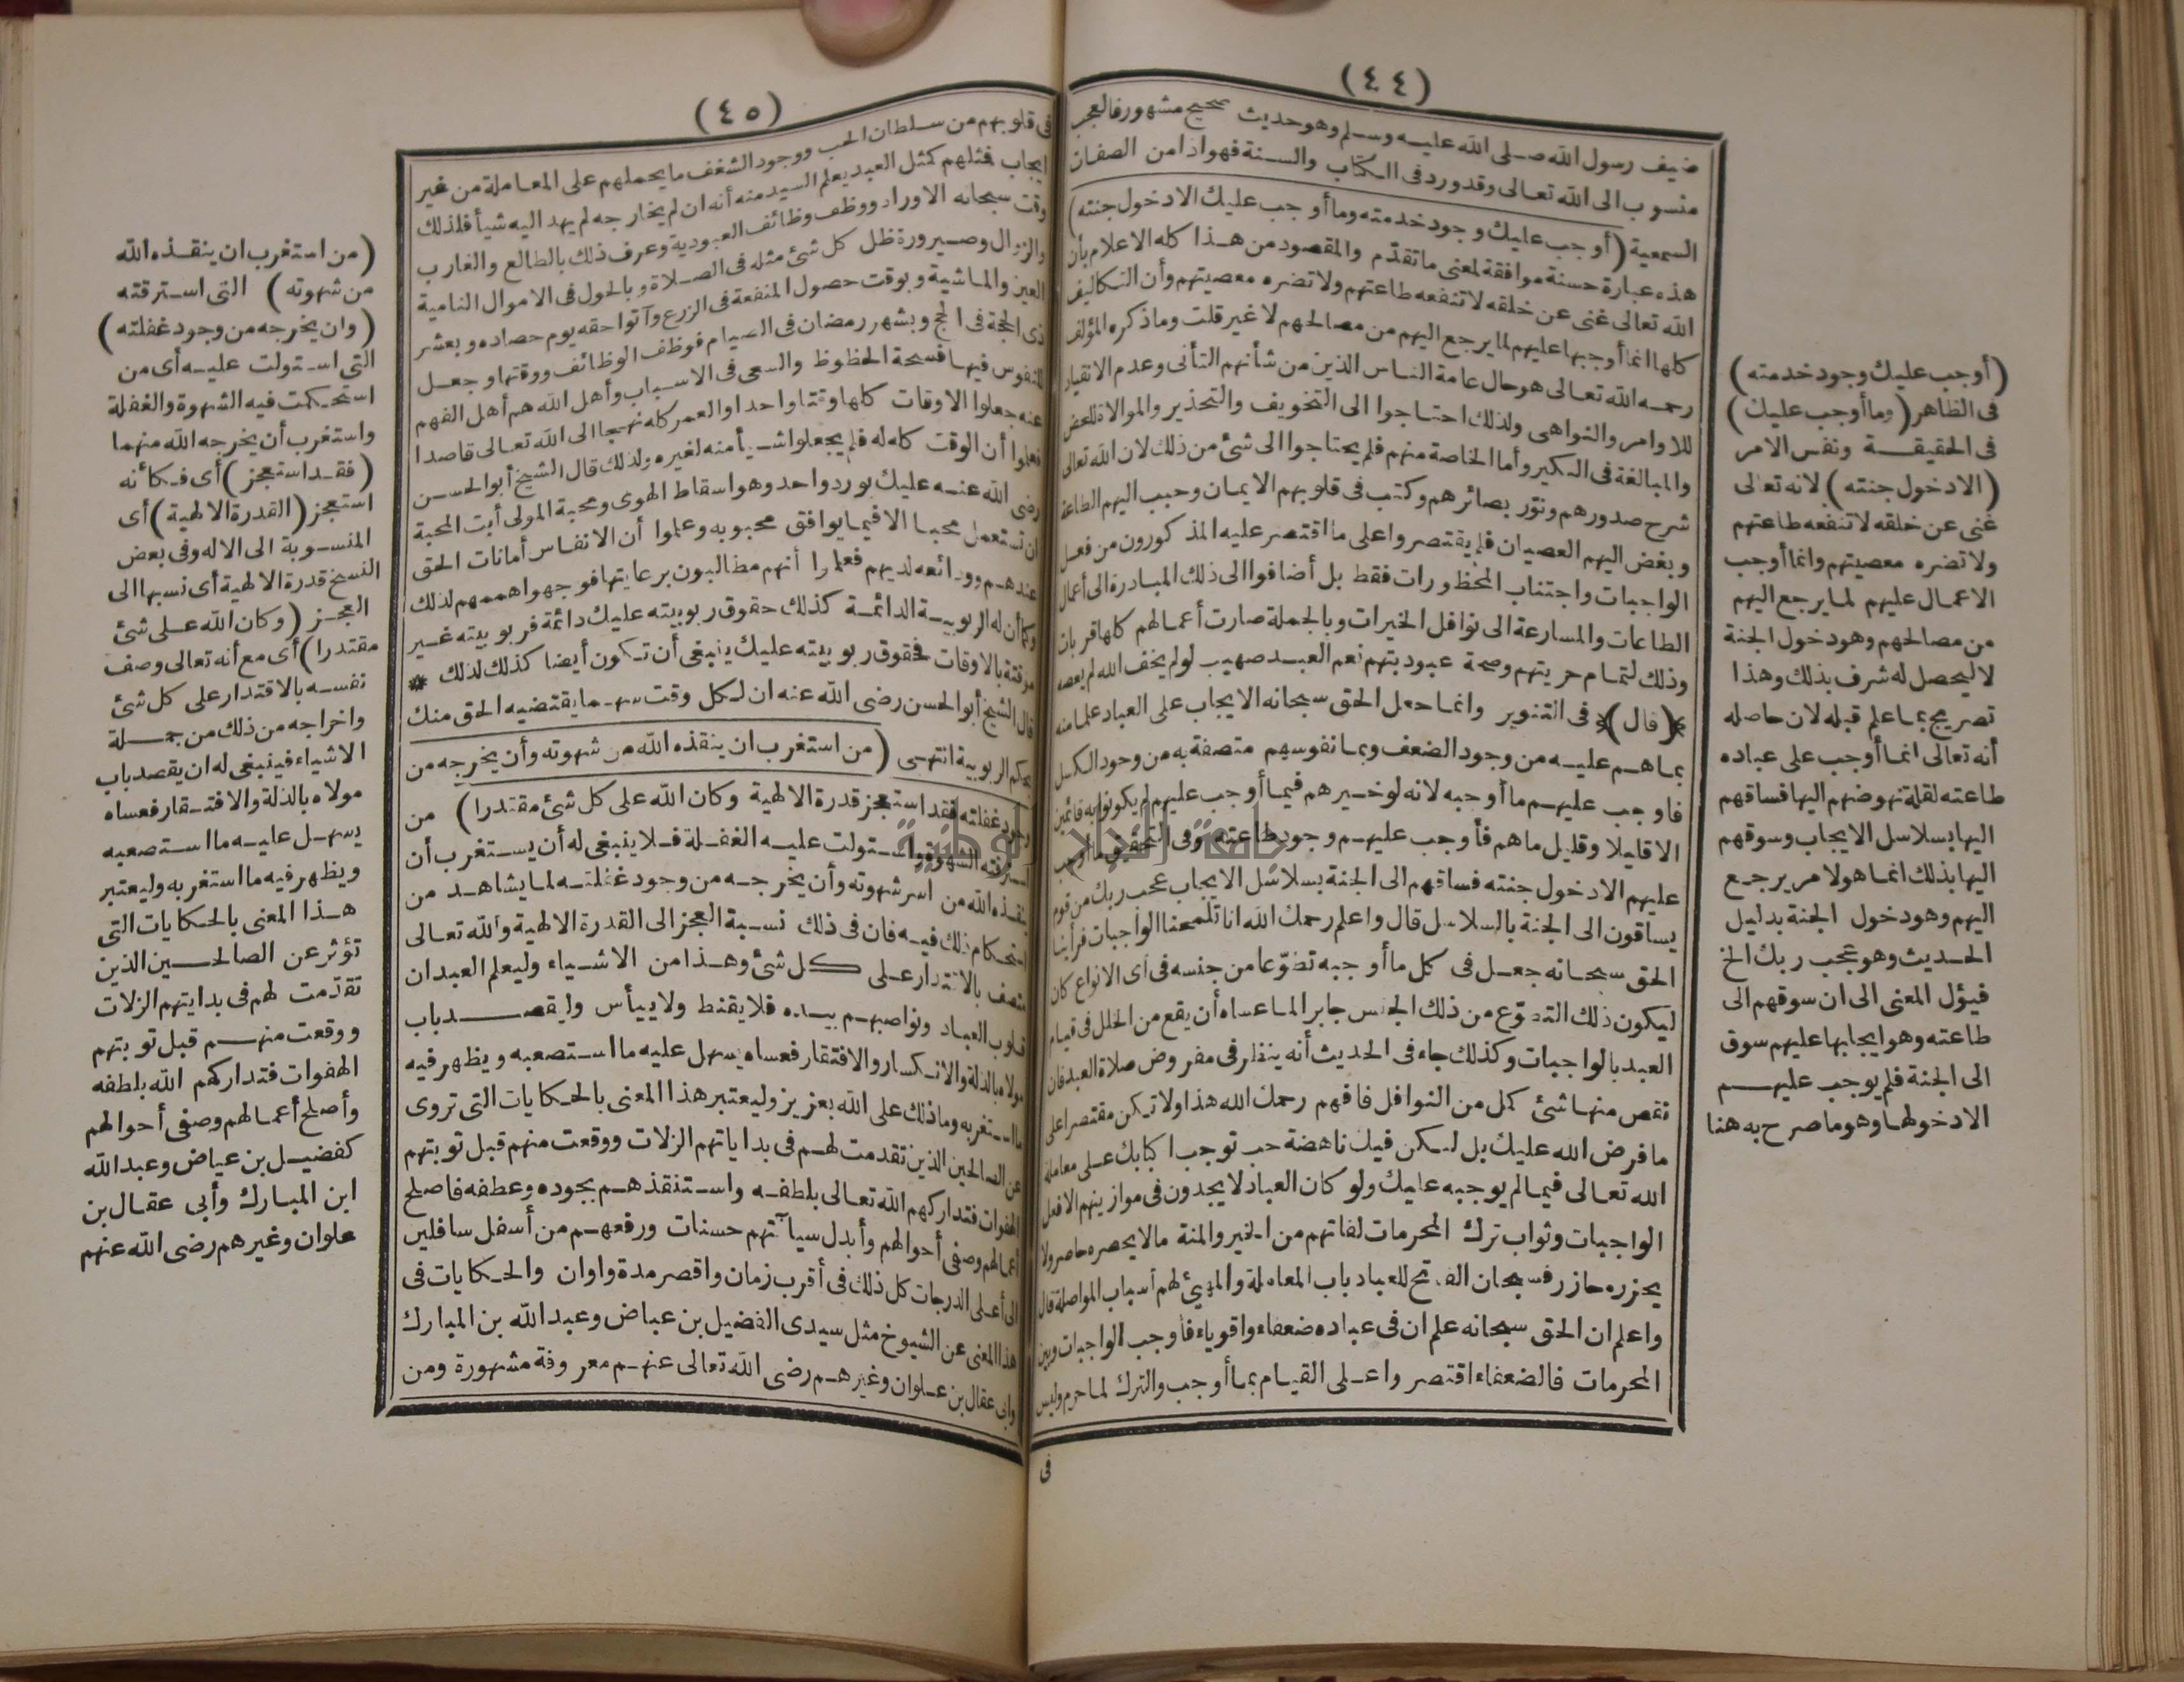 (٤٤)
ضيف رسول الله صلى الله عليه وسلم وهو حديث صحيح مشهور فالعجب
منسوب الى الله تعالى وقد ورد فى الكتاب والسنة فهو اذا من الصفات
السمعية (أوجب عليك وجود خدمته وما أوجب عليك الا دخول جنته)
هذه عبارة حسنة موافقة لمعنى ما تقدّم والمقصود من هذا كله الاعلام بأن
الله تعالى غنى عن خلقه لا تنفعه طاعتهم ولا تضره معصيتهم وأن التكاليف
كلها انما أوجبها عليهم لما يرجع اليهم من مصالحهم لا غير قلت وما ذكره المؤلف
رحمه الله تعالى هو حال عامة الناس الذين من شأنهم التأنى وعدم الانقياد
للاوامر والنواهى ولذلك احتاجوا الى التخويف والتحذير والموالاة للحض
والمبالغة فى النكير وأما الخاصة منهم فلم يحتاجوا الى شئ من ذلك لان الله تعالى
شرح صدورهم ونوّر بصائرهم وكتب فى قلوبهم الايمان وحبب اليهم الطاعة
وبغض اليهم العصيان فلم يقتصروا على ما اقتصر عليه المذكورون من فعل
الواجبات واجتناب المحظورات فقط بل أضافوا الى ذلك المبادرة الى أعمال
الطاعات والمسارعة الى نوافل الخيرات وبالجملة صارت أعمالهم كلها قربات
وذلك لتمام حريتهم وصحة عبوديتهم نعم العبد صهيب لو لم يخف الله لم يعصه
(قال) فى التنوير وانما جعل الحق سبحانه الايجاب على العباد علما منه
بما هم عليه من وجود الضعف وبما نفوسهم متصفة به من وجود الكسل
فاوجب عليهم ما أوجبه لانه لو خيرهم فيما أوجب عليهم لم يكونوا به قائمين
الا قليلا وقليل ما هم فأوجب عليهم وجود طاعته وفى التحقيق ما أوجب
عليهم الا دخول جنته فساقهم الى الجنة بسلاسل الايجاب عجب ربك من قوم
يساقون الى الجنة بالسلاسل قال واعلم رحمك الله انا تلمحنا الواجبات فرأينا
الحق سبحانه جعل فى كل ما أوجبه تطوّعا من جنسه فى أى الانواع كان
ليكون ذلك التطوّع من ذلك الجنس جابرا لما عساه أن يقع من الخلل فى قيام
العبد بالواجبات وكذلك جاء فى الحديث أنه ينظر فى مفروض صلاة العبد فان
نقص منها شئ كمل من النوافل فافهم رحمك الله هذا ولا تكن مقتصرا على
ما فرض الله عليك بل لتكن فيك ناهضة حب توجب اكبابك على معاملة
الله تعالى فيما لم يوجبه عليك ولو كان العباد لا يجدون فى موازينهم الا فعل
الواجبات وثواب ترك المحرمات لفاتهم من الخير والمنة ما لا يحصره حاصر ولا
يحزره حازر فسبحان الفاتح للعباد باب المعاملة والمهيئ لهم أسباب المواصلة قال
واعلم ان الحق سبحانه علم ان فى عباده ضعفاء واقوياء فأوجب الواجبات وبين
المحرمات فالضعفاء اقتصروا على القيام بما أوجب والترك لما حرم وليس
فى
(أوجب عليك وجود خدمته)
فى الظاهر (وما أوجب عليك)
فى الحقيقة ونفس الامر
(الا دخول جنته) لانه تعالى
غنى عن خلقه لا تنفعه طاعتهم
ولا تضره معصيتهم وانما أوجب
الاعمال عليهم لما يرجع اليهم
من مصالحهم وهو دخول الجنة
لا ليحصل له شرف بذلك وهذا
تصريح بما علم قبله لان حاصله
أنه تعالى انما أوجب على عباده
طاعته لقلة نهوضهم اليها فساقهم
اليها بسلاسل الايجاب وسوقهم
اليها بذلك انما هو لامر يرجع
اليهم وهو دخول الجنة بدليل
الحديث وهو عجب ربك الخ
فيؤل المعنى الى ان سوقهم الى
طاعته وهو ايجابها عليهم سوق
الى الجنة فلم يوجب عليهم
الا دخولها وهو ما صرح به هنا
(٤٥)
فى قلوبهم من سلطان الحب ووجود الشغف ما يحملهم على المعاملة من غير
ايجاب فمثلهم كمثل العبد يعلم السيد منه أنه ان لم يخارجه لم يهد اليه شيأ فلذلك
وقت سبحانه الاوراد ووظف وظائف العبودية وعرف ذلك بالطالع والغارب
والزوال وصيرورة ظل كل شئ مثله فى الصلاة وبالحول فى الاموال النامية
العين والماشية وبوقت حصول المنفعة فى الزرع وآتوا حقه يوم حصاده وبعشر
ذى الحجة فى الحج وبشهر رمضان فى الصيام فوظف الوظائف ووقتها وجعل
للنفوس فيها فسحة الحظوظ والسعى فى الاسباب وأهل الله هم أهل الفهم
عنه جعلوا الاوقات كلها وقتا واحدا والعمر كله نهجا الى الله تعالى قاصدا
فعلموا أن الوقت كله له فلم يجعلوا شيأ منه لغيره ولذلك قال الشيخ أبو الحسن
رضى الله عنه عليك بورد واحد وهو اسقاط الهوى ومحبة المولى أبت المحبة
ان تستعمل محبا الا فيما يوافق محبوبه وعلموا أن الانفاس أمانات الحق
عندهم وودائعه لديهم فعلموا أنهم مطالبون برعايتها فوجهوا هممهم لذلك
وكما أن له الربوبية الدائمة كذلك حقوق ربوبيته عليك دائمة فربوبيته غير
مؤقتة بالاوقات فحقوق ربوبيته عليك ينبغى أن تكون أيضا كذلك لذلك *
قال الشيخ أبو الحسن رضى الله عنه ان لكل وقت سهما يقتضيه الحق منك
بحكم الربوبية انتهى (من استغرب ان ينقذه الله من شهوته وأن يخرجه من
وجود غفلته فقد استعجز قدرة الالهية وكان الله على كل شئ مقتدرا) من
استرقته الشهوة واستولت عليه الغفلة فلا ينبغى له أن يستغرب أن
ينقذه الله من اسر شهوته وأن يخرجه من وجود غفلته لما يشاهد من
استحكام ذلك فيه فان فى ذلك نسبة العجز الى القدرة الالهية والله تعالى
متصف بالاقتدار على كل شئ وهذا من الاشياء وليعلم العبد ان
قلوب العباد ونواصيهم بيده فلا يقنط ولا ييأس وليقصد باب
مولاه بالذلة والانكسار والافتقار فعساه يسهل عليه ما استصعبه ويظهر فيه
ما استغربه وما ذلك على الله بعزيز وليعتبر هذا المعنى بالحكايات التى تروى
عن الصالحين الذين تقدمت لهم فى بداياتهم الزلات ووقعت منهم قبل توبتهم
الهفوات فتداركهم الله تعالى بلطفه واستنقذهم بجوده وعطفه فاصلح
أعمالهم وصفى أحوالهم وأبدل سيآتهم حسنات ورفعهم من أسفل سافلين
الى أعلى الدرجات كل ذلك فى أقرب زمان واقصر مدة واوان والحكايات فى
هذا المعنى عن الشيوخ مثل سيدى الفضيل بن عياض وعبد الله بن المبارك
وابى عقال بن علوان وغيرهم رضى الله تعالى عنهم معروفة مشهورة ومن
(من استغرب ان ينقذه الله
من شهوته) التى استرقته
(وان يخرجه من وجود غفلته)
التى استولت عليه أى من
استحكمت فيه الشهوة والغفلة
واستغرب أن يخرجه الله منهما
(فقد استعجز) أى فكأنه
استعجز (القدرة الالهية) أى
المنسوبة الى الاله وفى بعض
النسخ قدرة الالهية أى نسبها الى
العجز (وكان الله على شئ
مقتدرا) أى مع أنه تعالى وصف
نفسه بالاقتدار على كل شئ
واخراجه من ذلك من جملة
الاشياء فينبغى له ان يقصد باب
مولاه بالذلة والافتقار فعساه
يسهل عليه ما استصعبه
ويظهر فيه ما استغربه وليعتبر
هذا المعنى بالحكايات التى
تؤثر عن الصالحين الذين
تقدّمت لهم فى بدايتهم الزلات
ووقعت منهم قبل توبتهم
الهفوات فتداركهم الله بلطفه
وأصلح أعمالهم وصفى أحوالهم
كفضيل بن عياض وعبد الله
ابن المبارك وأبى عقال بن
علوان وغيرهم رضى الله عنهم
جامعة النجاح الوطنية